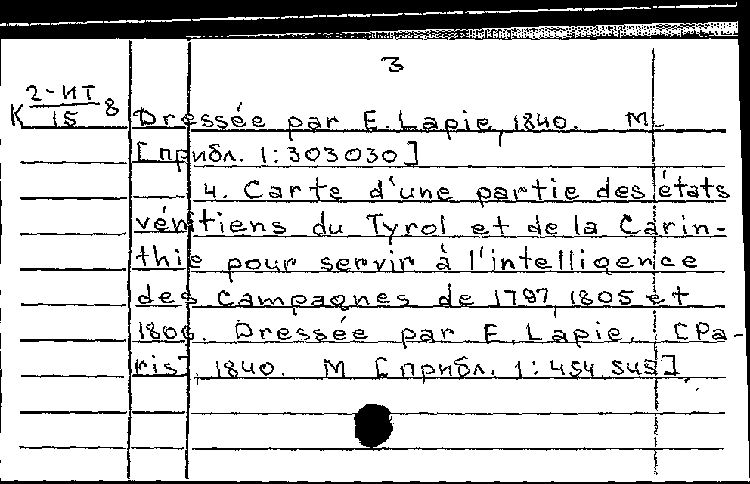 3
К 2-ИТ/15 8
Dressée par E. Lapie, 1840. М
[прибл. 1:303030]
4. Carte d'une partie des états
vénitiens du Tyrol et de la Carin-
thie pour servir à l'intelligence
des campagnes de 1797, 1805 et
1806. Dressée par E. Lapie. [Pa-
ris], 1840. М [прибл. 1:454545].